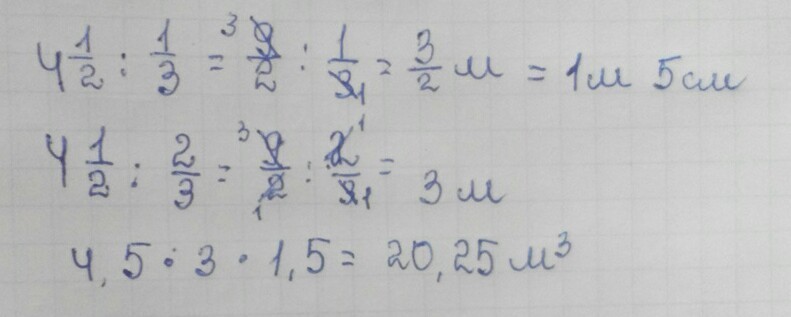 4 1/2 : 1/3 = 3 9/2 : 1/3 1 = 3/2 м = 1м 5см
4 1/2 : 2/3 = 3 9/2 1 : 2/3 1 1 = 3 м
4,5 · 3 · 1,5 = 20,25 м³